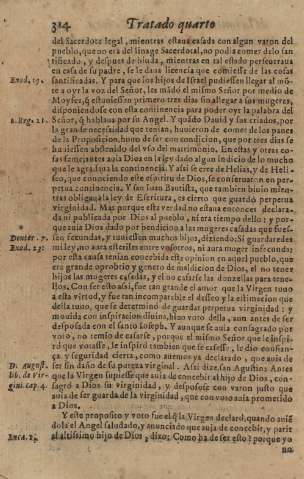 324 Tratado quarto
del Sacerdote legal, mientras estaua casada con algun varon del
pueblo, que no era del linage Sacerdotal, no podia comer de lo san
tificado, y despues de biuda, mientras en tal estado perseueraua
en casa de su padre, se le daua licencia que comiesse de las cosas
Exod. 19. santificadas. Y para que los hijos de Israel pudiessen llegar al mõ
te a oyr la voz del Señor, les mãdó el mismo Señor por medio de
Moyses, q̃ estuuiessen primero tres dias sin llegar a sus mugeres,
disponiendose con esta continencia para poder oyr la palabra del
1. Reg. 21. Señor, q̃ hablaua por su Angel. Y quãdo Dauid y sus criados, por
la grande necessidad que tenian, huuieron de comer de los panes
de la Proposicion, huuo de ser con condicion, que por tres dias se
huuiessen abstenido del vso del matrimonio. En estas y otras co-
sas semejantes auia Dios en la ley dado algun indicio de lo mucho
que le agradaua la continencia. Y assi se cree de Helias, y de Heli-
seo, que conociendo este espiritu de Dios, se conseruaron en per-
petua continencia. Y san Iuan Bautista, que tambien biuio mien-
tras obligaua la ley de Escritura, es cierto que guardó perpetua
virginidad. Mas porque esta verdad no estaua entonces declara-
da ni publicada por Dios al pueblo, ni era tiempo dello; y por-
que auia Dios dado por bendicion a las mugeres casadas que fues-
Deuter. 7. sen fecundas, y tuuiessen muchos hijos, diziendo: Si guardaredes
Exod. 23. mi ley, no aura esteriles entre vosotros, ni aura muger infecunda:
por esta causa tenian concebida esta opinion en aquel pueblo, que
era grande oprobrio y genero de maldicion de Dios, el no tener
hijos las mugeres casadas, y el no casarse las donzellas para tener-
los. Con ser esto assi, fue tan grande el amor que la Virgen tuuo
a esta virtud, y fue tan incomparable el desseo y la estimacion que
della tuuo, que se determinó de guardar perpetua virginidad; y
mouida con inspiracion diuina, hizo voto della, aun antes de ser
desposada con el santo Ioseph. Y aunque se auia consagrado por
voto, no temio de casarse, porque el mismo Señor que le inspi-
ró que votasse, le inspiró tambien que se casasse, le dio confian-
ça y seguridad cierta, como auemos ya declarado, que auia de
D. August. ser sin daño de su pureza virginal. Assi dize san Agustin: Antes
lib. de Vir- que la Virgen supiesse que auia de concebir al hijo de Dios, con-
gini. cap. 4. sagró a Dios su virginidad, y desposose con varon justo que
auia de ser guarda de la virginidad, que con voto auia prometido
a Dios.
Y este proposito y voto fue el q̃ la Virgen declaró, quando auiẽ
dola el Angel saludado, y anunciado que auia de concebir, y parir
Luca. 1. al altissimo hijo de Dios, dixo: Como ha de ser esto? porque yo
no